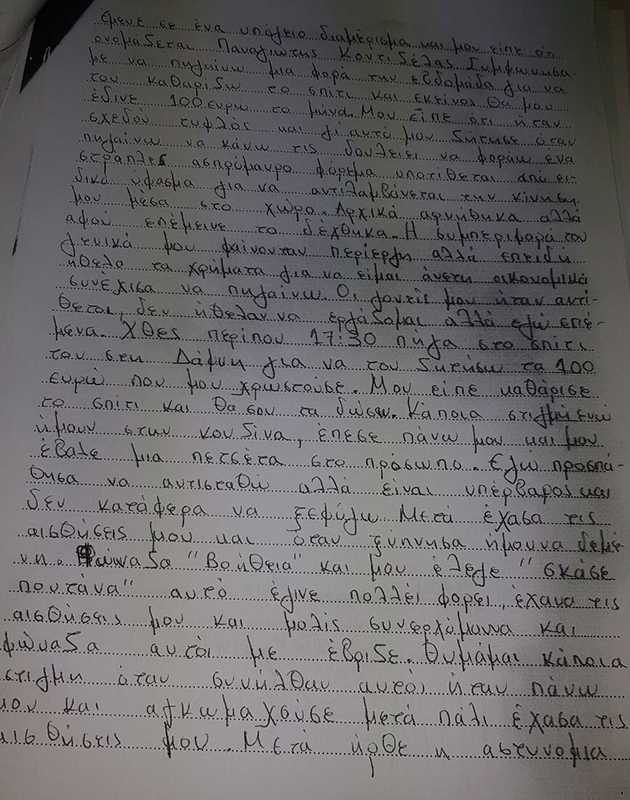 έμενε σε ένα υπόγειο διαμέρισμα και μου είπε οτι
ονομάζεται Παναγιώτης Κοντιδέλας. Συμφώνησα
με να πηγαίνω μια φορά την εβδομάδα για να
του καθαρίζω το σπίτι και εκείνος θα μου
έδινε 100 ευρω το μήνα. Μου είπε ότι ήταν
σχεδόν τυφλός και γι αυτό μου ζήτησε όταν
πηγαίνω να κάνω τις δουλειές να φοράω ένα
στράπλες ασπρόμαυρο φόρεμα υποτίθεται από ει-
δικό ύφασμα για να αντιλαμβάνεται την κίνηση
μου μέσα στο χώρο. Αρχικά αρνήθηκα αλλά
αφού επέμεινε το δέχθηκα. Η συμπεριφορά του
γενικά μου φαίνονταν περίεργη αλλά επειδή
ήθελα τα χρήματα για να είμαι άνετη οικονομικά
συνέχισα να πηγαίνω. Οι γονείς μου ήταν αντί-
θετοι, δεν ήθελαν να εργάζομαι αλλά εγώ επέ-
μενα. Χθες περίπου 17:30 πήγα στο σπίτι
του στη Δάφνη για να του ζητήσω τα 100
ευρώ που μου χρωστούσε. Μου είπε καθάρισε
το σπίτι και θα σου τα δώσω. Κάποια στιγμή ενώ
ήμουν στην κουζίνα, έπεσε πάνω μου και μου
έβαλε μια πετσέτα στο πρόσωπο. Εγώ προσπά-
θησα να αντισταθώ αλλά είναι υπέρβαρος και
δεν κατάφερα να ξεφύγω. Μετά έχασα τις
αισθήσεις μου και όταν ξύπνησα ήμουνα δεμέ-
νη. Φώναξα "Βοήθεια" και μου έλεγε "σκάσε
πουτάνα" αυτό έγινε πολλές φορές, έχανα τις
αισθήσεις μου και μόλις συνερχόμουνα και
φώναζα αυτός με έβριζε. Θυμάμαι κάποια
στιγμή όταν συνήλθα αυτός ήταν πάνω
μου και αγκωμαχούσε μετά πάλι έχασα τις
αισθήσεις μου. Μετά ήρθε η αστυνομία